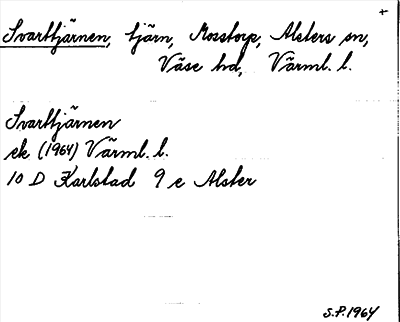 +
Svarttjärnen, tjärn, Mosstorp, Alsters sn,
Väse hd, Värml. l.
Svarttjärnen
ek (1964) Värml. l.
10 D Karlstad 9 e Alster
S.P. 1964